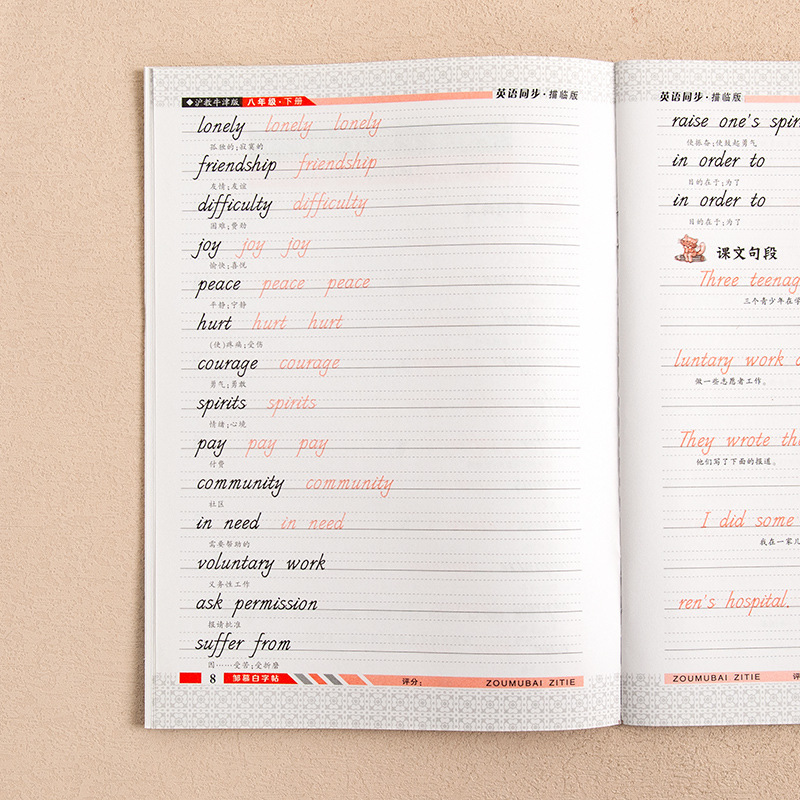 ◆沪教牛津版 八年级·下册 英语同步·描临版
lonely lonely lonely
孤独的;寂寞的
friendship friendship
友情;友谊
difficulty difficulty
困难;费劲
joy joy joy
愉快;喜悦
peace peace peace
平静;宁静
hurt hurt hurt
(使)疼痛;受伤
courage courage
勇气;勇敢
spirits spirits
情绪;心境
pay pay pay
付费
community community
社区
in need in need
需要帮助的
voluntary work
义务性工作
ask permission
报请批准
suffer from
因……受苦;受折磨
8 邹慕白字帖 评分: ZOUMUBAI ZITIE
英语同步·描临版
raise one's spir
使振奋;使鼓起勇气
in order to
目的在于;为了
in order to
目的在于;为了
课文句段
Three teenag
三个青少年在学
luntary work
做一些志愿者工作。
They wrote th
他们写了下面的报道。
I did some
我在一家儿
ren's hospital.
ZOUMUBAI ZITIE